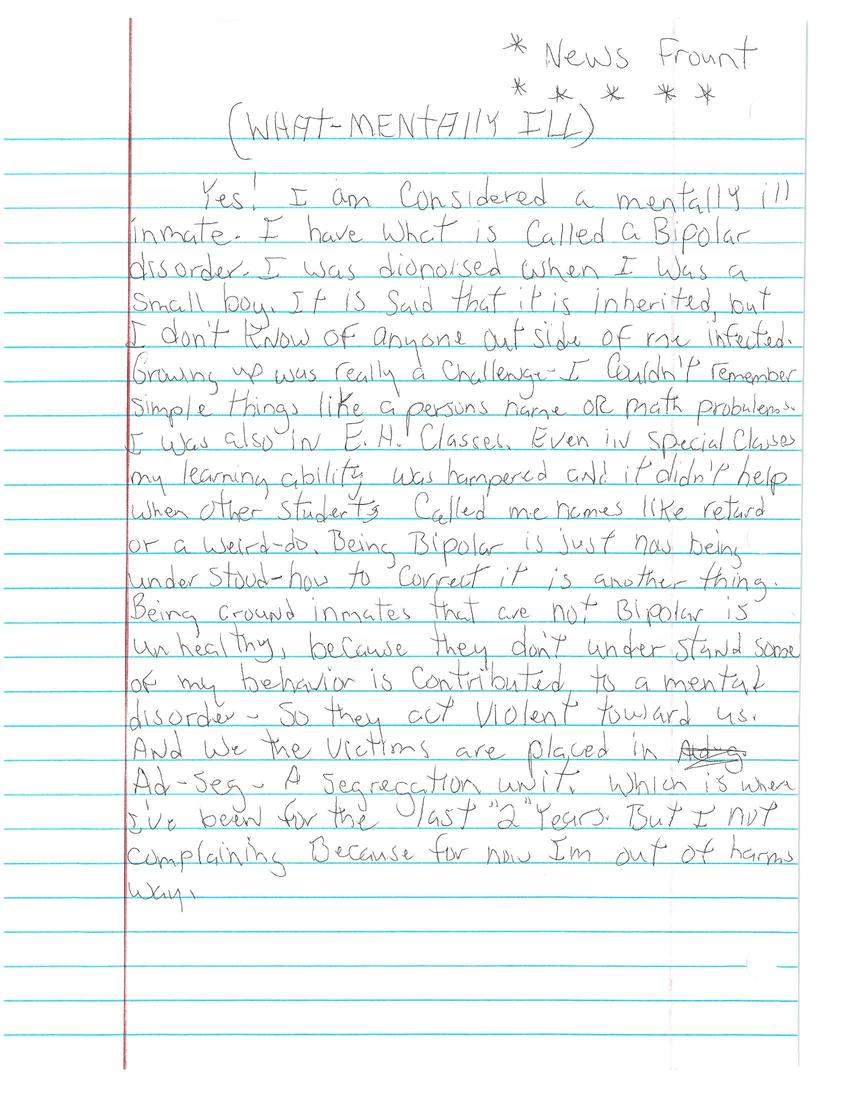 * News Frount
* * * * *
(WHAT-MENTALLY ILL)
Yes! I am Considered a mentally ill
inmate. I have what is Called a Bipolar
disorder. I was dionoised when I was a
small boy. It is said that it is inherited, but
I don't know of anyone out side of me infected.
Growing up was really a Challenge-I Couldn't remember
simple things like a persons name OR math probulems.
I was also in E.H. Classes. Even in special Classes
my learning ability was hampered and it didn't help
when other students Called me names like retard
or a weird-do. Being Bipolar is just now being
under stood-how to Correct it is another thing.
Being around inmates that are not Bipolar is
un healthy, because they don't under stand some
of my behavior is Contributed to a mental
disorder- So they act Violent toward us.
And We the victims are placed in
Ad-Seg- A segregation unit. Which is where
I've been for the last "2" Years. But I not
Complaining Because for now Im out of harms
way.